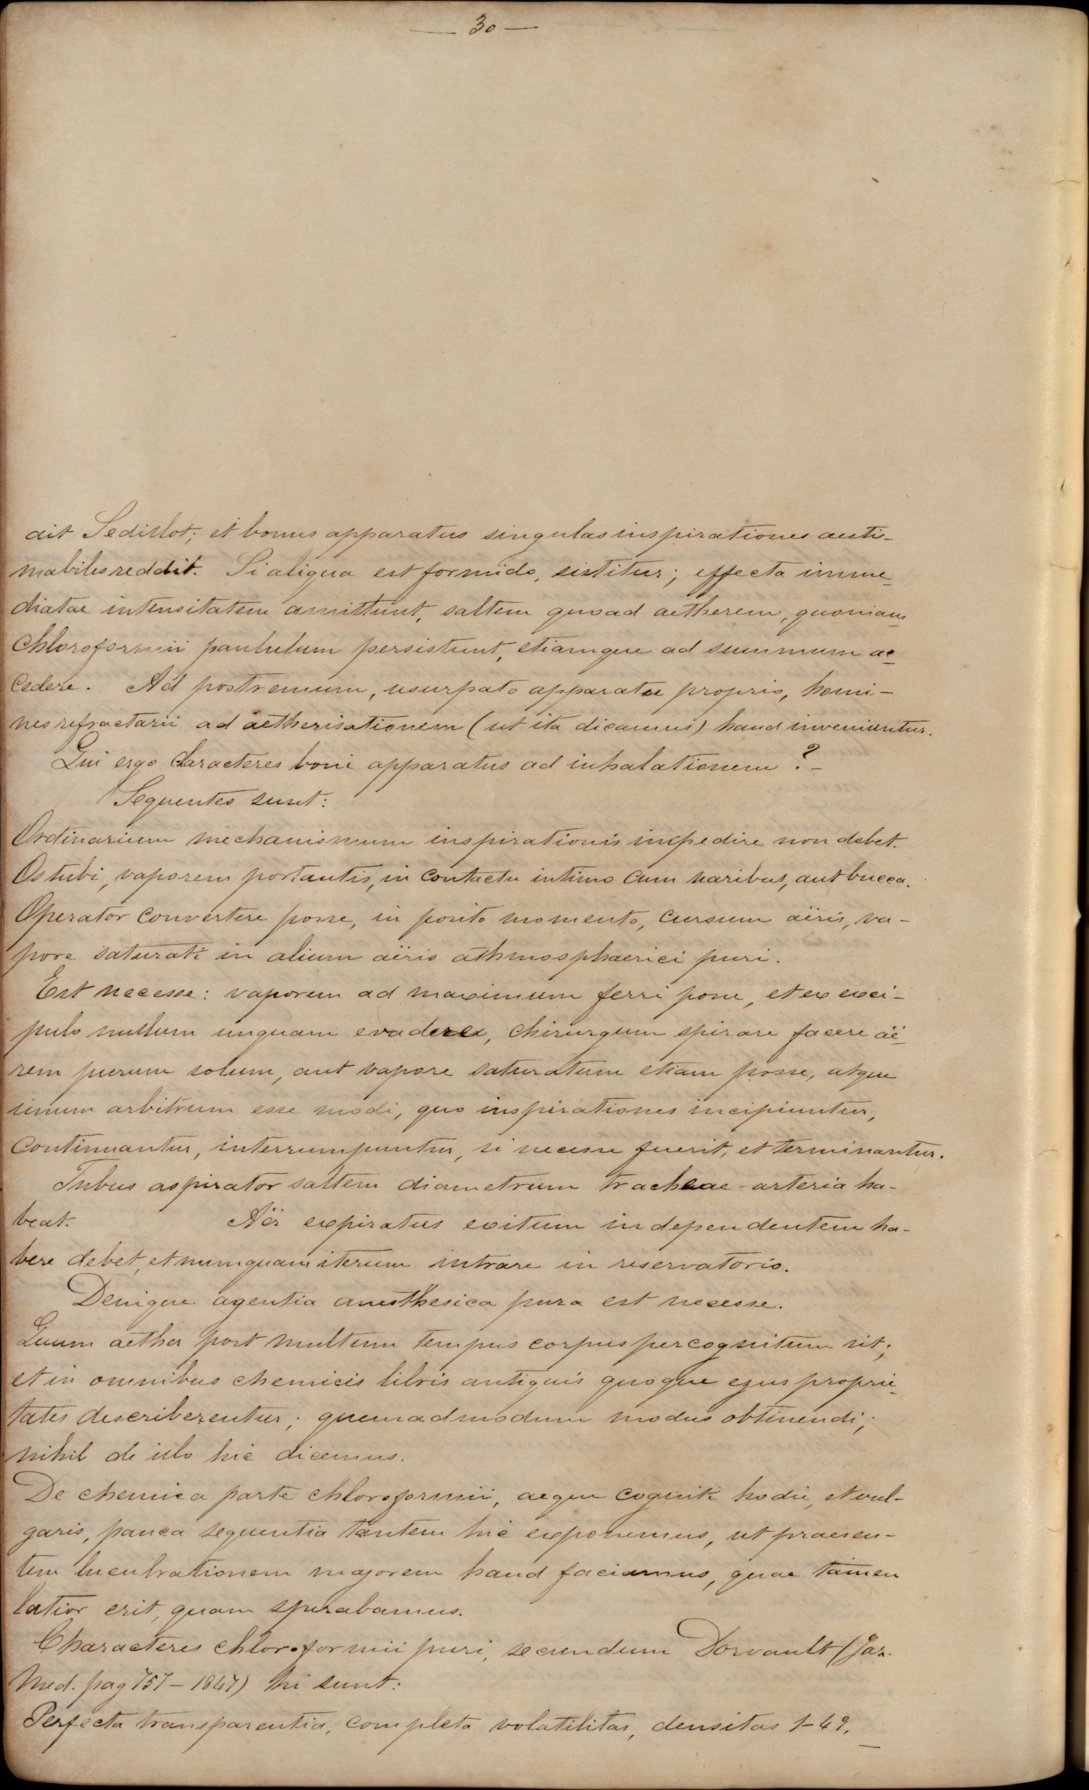 — 30 —
ait Sedillot; et bonus apparatus singulas inspirationes aesti-
mabiles reddit. Si aliqua est formido, sistitur; effecta imme-
diatae intensitatem amittunt, saltem quoad aetherem, quoniam
chloroformii paululum persistunt, etiamque ad summum ac-
cedere. Ad postremum, usurpato apparatu proprio, homi-
nes refractarii ad aetherisationem (ut ita dicamus) haud inveniuntur.
Qui ergo characteres boni apparatus ad inhalationem? –
Sequentes sunt:
Ordinarium mechanismum inspirationis impedire non debet.
Os tubi, vaporem portantis, in contactu intimo cum naribus, aut bucca.
Operator convertere posse, in posito momento, cursum aëris, va-
pore saturati in alium aëris athmosphaerici puri.
Est necesse: vaporem ad maximum ferri posse, et ex exci-
pulo nullum unquam evadere, chirurgum spirare facere aë-
rem purum solum, aut vapore saturatum etiam posse, atque
unum arbitrum esse modi, quo inspirationes incipiuntur,
continuantur, interrumpuntur, si necesse fuerit, et terminantur.
Tubus aspirator saltem diametrum tracheae-arteria ha-
beat. Aër expiratus exitum independentem ha-
bere debet, et numquam iterum intrare in reservatorio.
Denique agentia anesthesica pura est necesse.
Quum aether post multum tempus corpus percognitum sit;
et in omnibus chemicis libris antiquis quoque ejus proprie-
tates describerentur; quemadmodum modus obtinendi;
nihil de illo hic dicemus.
De chemica parte chloroformii, aeque cogniti hodie, et vul-
garis, pauca sequentia tantem hic exponemus, ut praesen-
tem lucubrationem majorem haud faciamus, quae tamen
latior erit, quam sperabamus.
Characteres chloroformii puri, secundum Dorvault (Gaz.
Med. pag 757 – 1847) hi sunt:
Perfecta transparentia, completa volatilitas, densitas 1-49. –